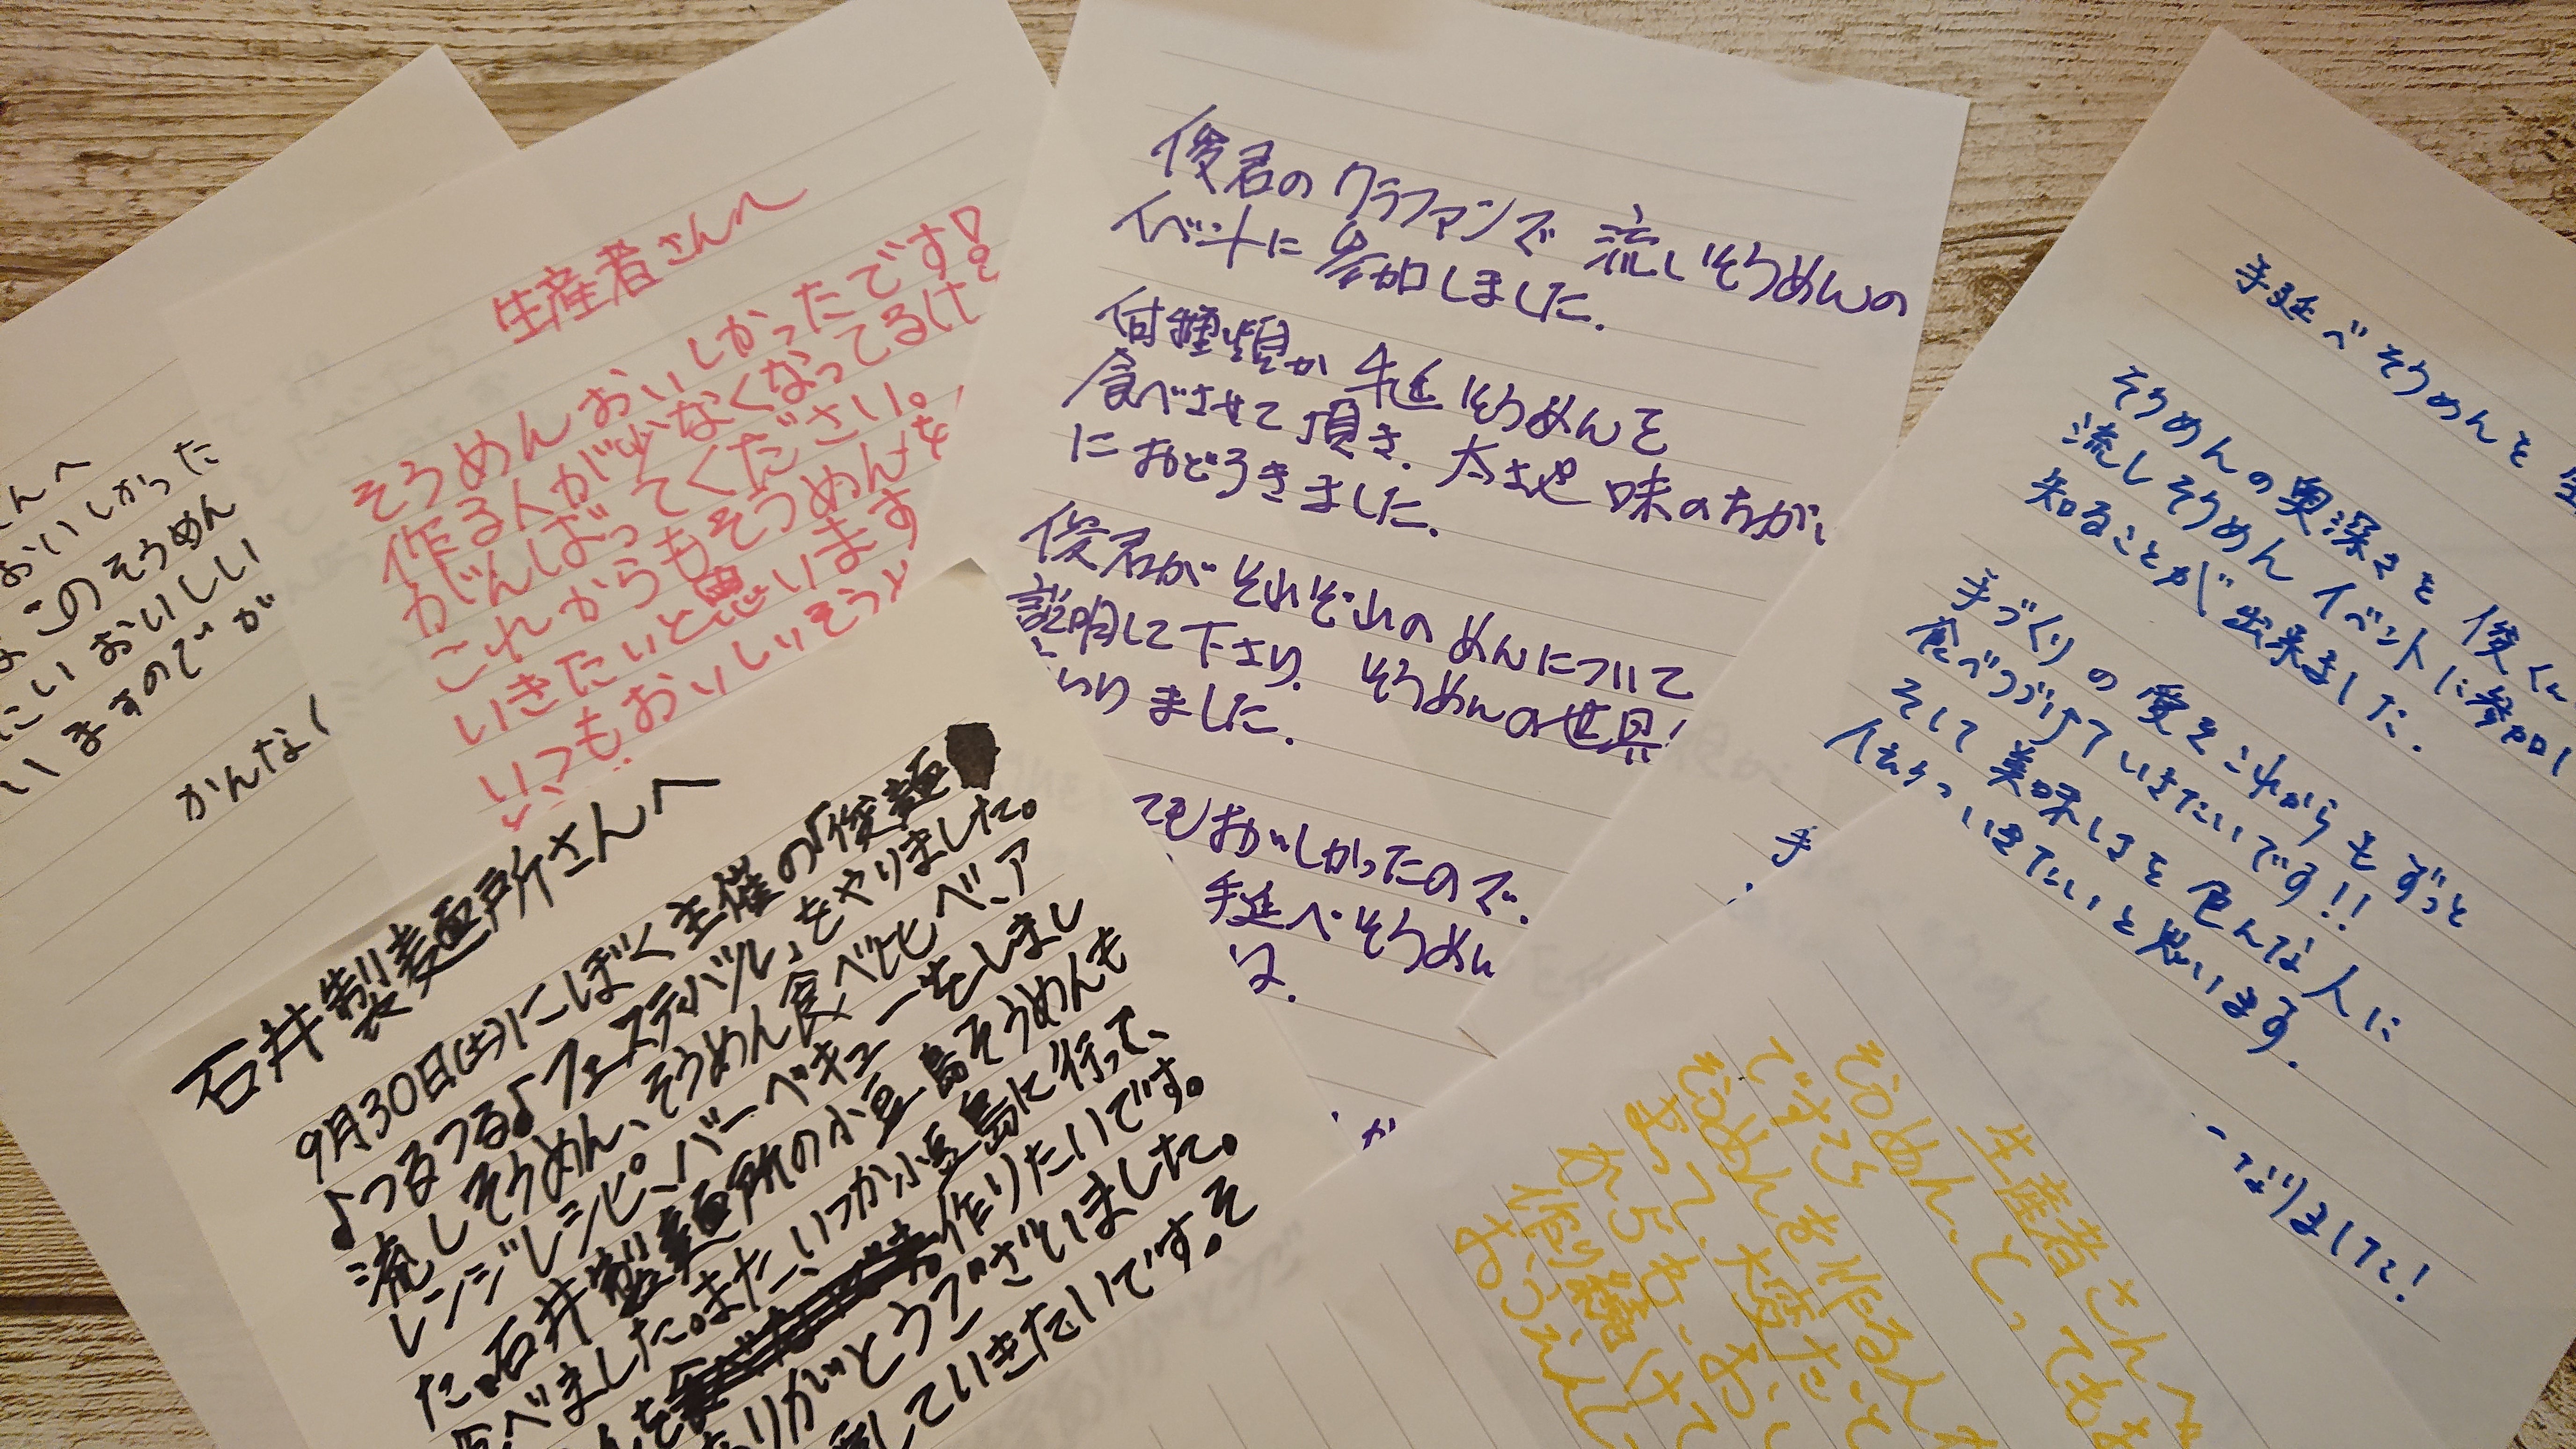 んへ
おいしかった
このそうめん
にいおいしい
いますのでが
かんなく
生産者さんへ
そうめんおいしかったです!
作る人が少なくなってるけど
がんばってください。
これからもそうめんを
いきたいと思います
いつもおいしいそう
俊君のクラファンで流しそうめんの
イベントに参加しました.
何種類か手延そうめんを
食べさせて頂き.太さや味のちがい
におどろきました.
俊君がそれぞれのめんについて
説明して下さり.そうめんの世界
いりました.
てもおいしかったので.
手延べそうめん
か
手延べそうめんを
そうめんの奥深さを俊くん
流しそうめんイベントに参加し
知ることが出来ました.
手づくりの愛をこれからもずっと
食べつづけていきたいです!!
そして美味しさを色んな人に
いきたいと思います.
なりました!
手
石井製麺所さんへ
9月30日(土)にぼく主催の「俊麺
♪つるつる♪フェスティバル」をやりました。
流しそうめん、そうめん食べ比べ、ア
レンジレシピ、バーベキューをしまし
た。石井製麺所の小豆島そうめんも
食べました。またいつか小豆島に行って、
んを作りたいです。
ありがとうございました。
していきたいです。そ
生産者さんへ
そうめん、とってもお
ですね
そうめんを作る人が
って、大変だと
からも、おい
作り続けて
おうえんし